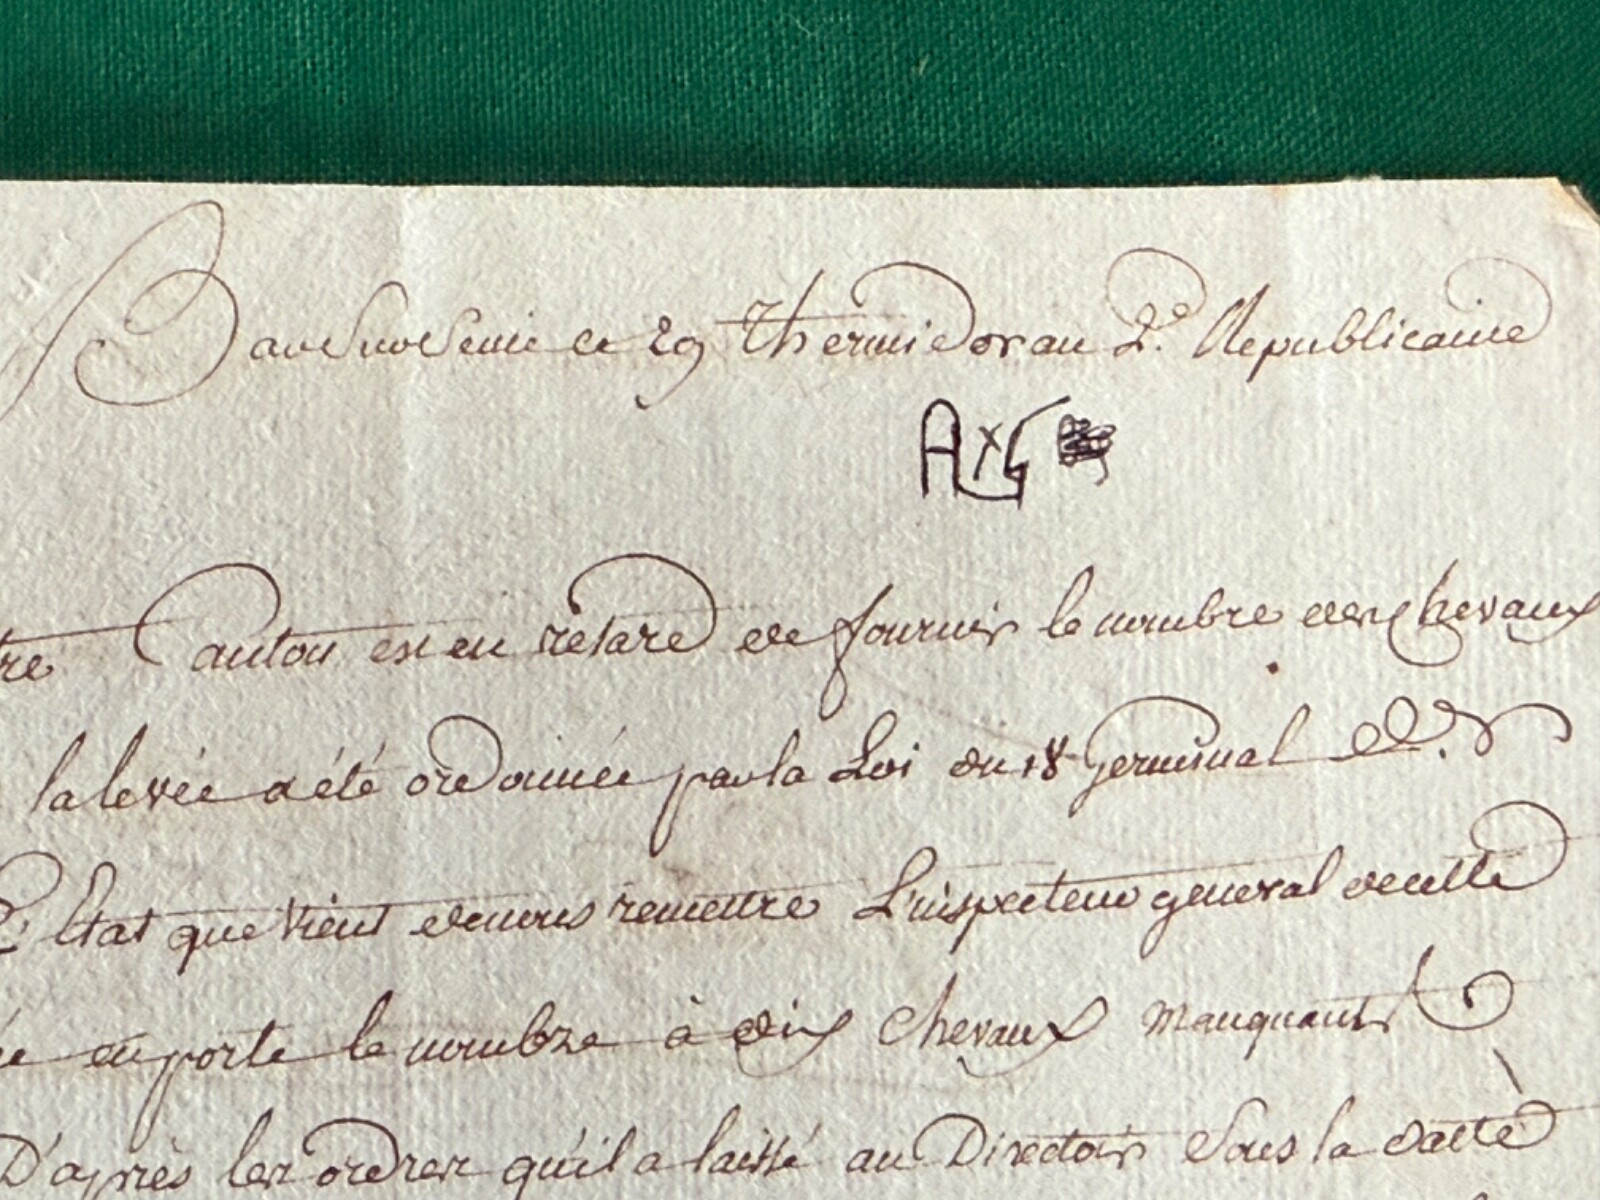 Bar sur Seine le 29 Thermidor an 2.e Republicaine
tre Canton est en retard de fournir le nombre des chevaux
la levée a été ordonnée par la Loi du 18 Germinal
L'Etat que vient de nous remettre L'inspecteur general de cette
en porte le nombre à dix chevaux manquants
D'après les ordres qu'il a laissé au Directoir sous la datte